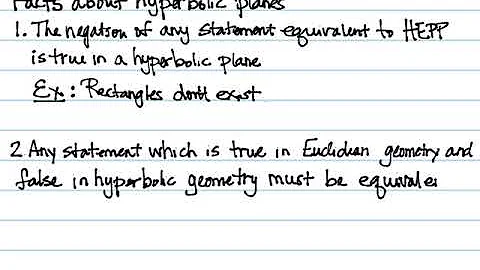 Facts about hyperbolic planes
1. The negation of any statement equivalent to HEPP
is true in a hyperbolic plane
Ex: Rectangles don't exist
2 Any statement which is true in Euclidean geometry and
false in hyperbolic geometry must be equivale